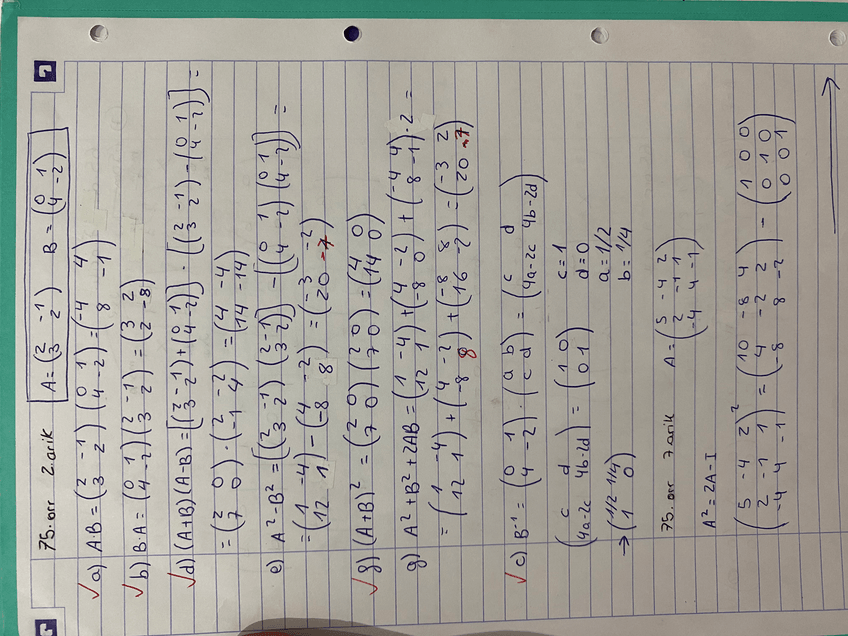 75. orr 2. arik A = (2 -1 / 3 2) B = (0 1 / 4 -2)
✓ a) A·B = (2 -1 / 3 2) (0 1 / 4 -2) = (-4 4 / 8 -1)
✓ b) B·A = (0 1 / 4 -2) (2 -1 / 3 2) = (3 2 / 2 -8)
✓ d) (A+B)(A-B) = [(2 -1 / 3 2) + (0 1 / 4 -2)] · [(2 -1 / 3 2) - (0 1 / 4 -2)] =
= (2 0 / 7 0) · (2 -2 / -1 4) = (4 -4 / 14 -14)
e) A² - B² = [(2 -1 / 3 2) (2 -1 / 3 2)] - [(0 1 / 4 -2) (0 1 / 4 -2)] =
= (1 -4 / 12 1) - (4 -2 / -8 8) = (-3 -2 / 20 -7)
✓ f) (A+B)² = (2 0 / 7 0) (2 0 / 7 0) = (4 0 / 14 0)
g) A² + B² + 2AB = (1 -4 / 12 1) + (4 -2 / -8 0) + (-4 4 / 8 -1) · 2 =
= (1 -4 / 12 1) + (4 -2 / -8 8) + (-8 8 / 16 -2) = (-3 2 / 20 -7)
✓ c) B⁻¹ = (0 1 / 4 -2) · (a b / c d) = (c d / 4a-2c 4b-2d)
(c d / 4a-2c 4b-2d) = (1 0 / 0 1) c=1
d=0
a=1/2
→ (1/2 1/4 / 1 0) b=1/4
75. orr 7. arik A = (5 -4 2 / 2 -1 1 / -4 4 -1)
A² = 2A-I
(5 -4 2 / 2 -1 1 / -4 4 -1)² = (10 -8 4 / 4 -2 2 / -8 8 -2) - (1 0 0 / 0 1 0 / 0 0 1)